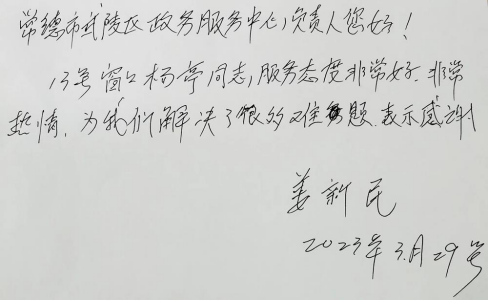 常德市武陵区政务服务中心负责人您好！
13号窗口杨亭同志，服务态度非常好.非常
热情.为我们解决了很多难题.表示感谢
姜新民
2023年3.月29号